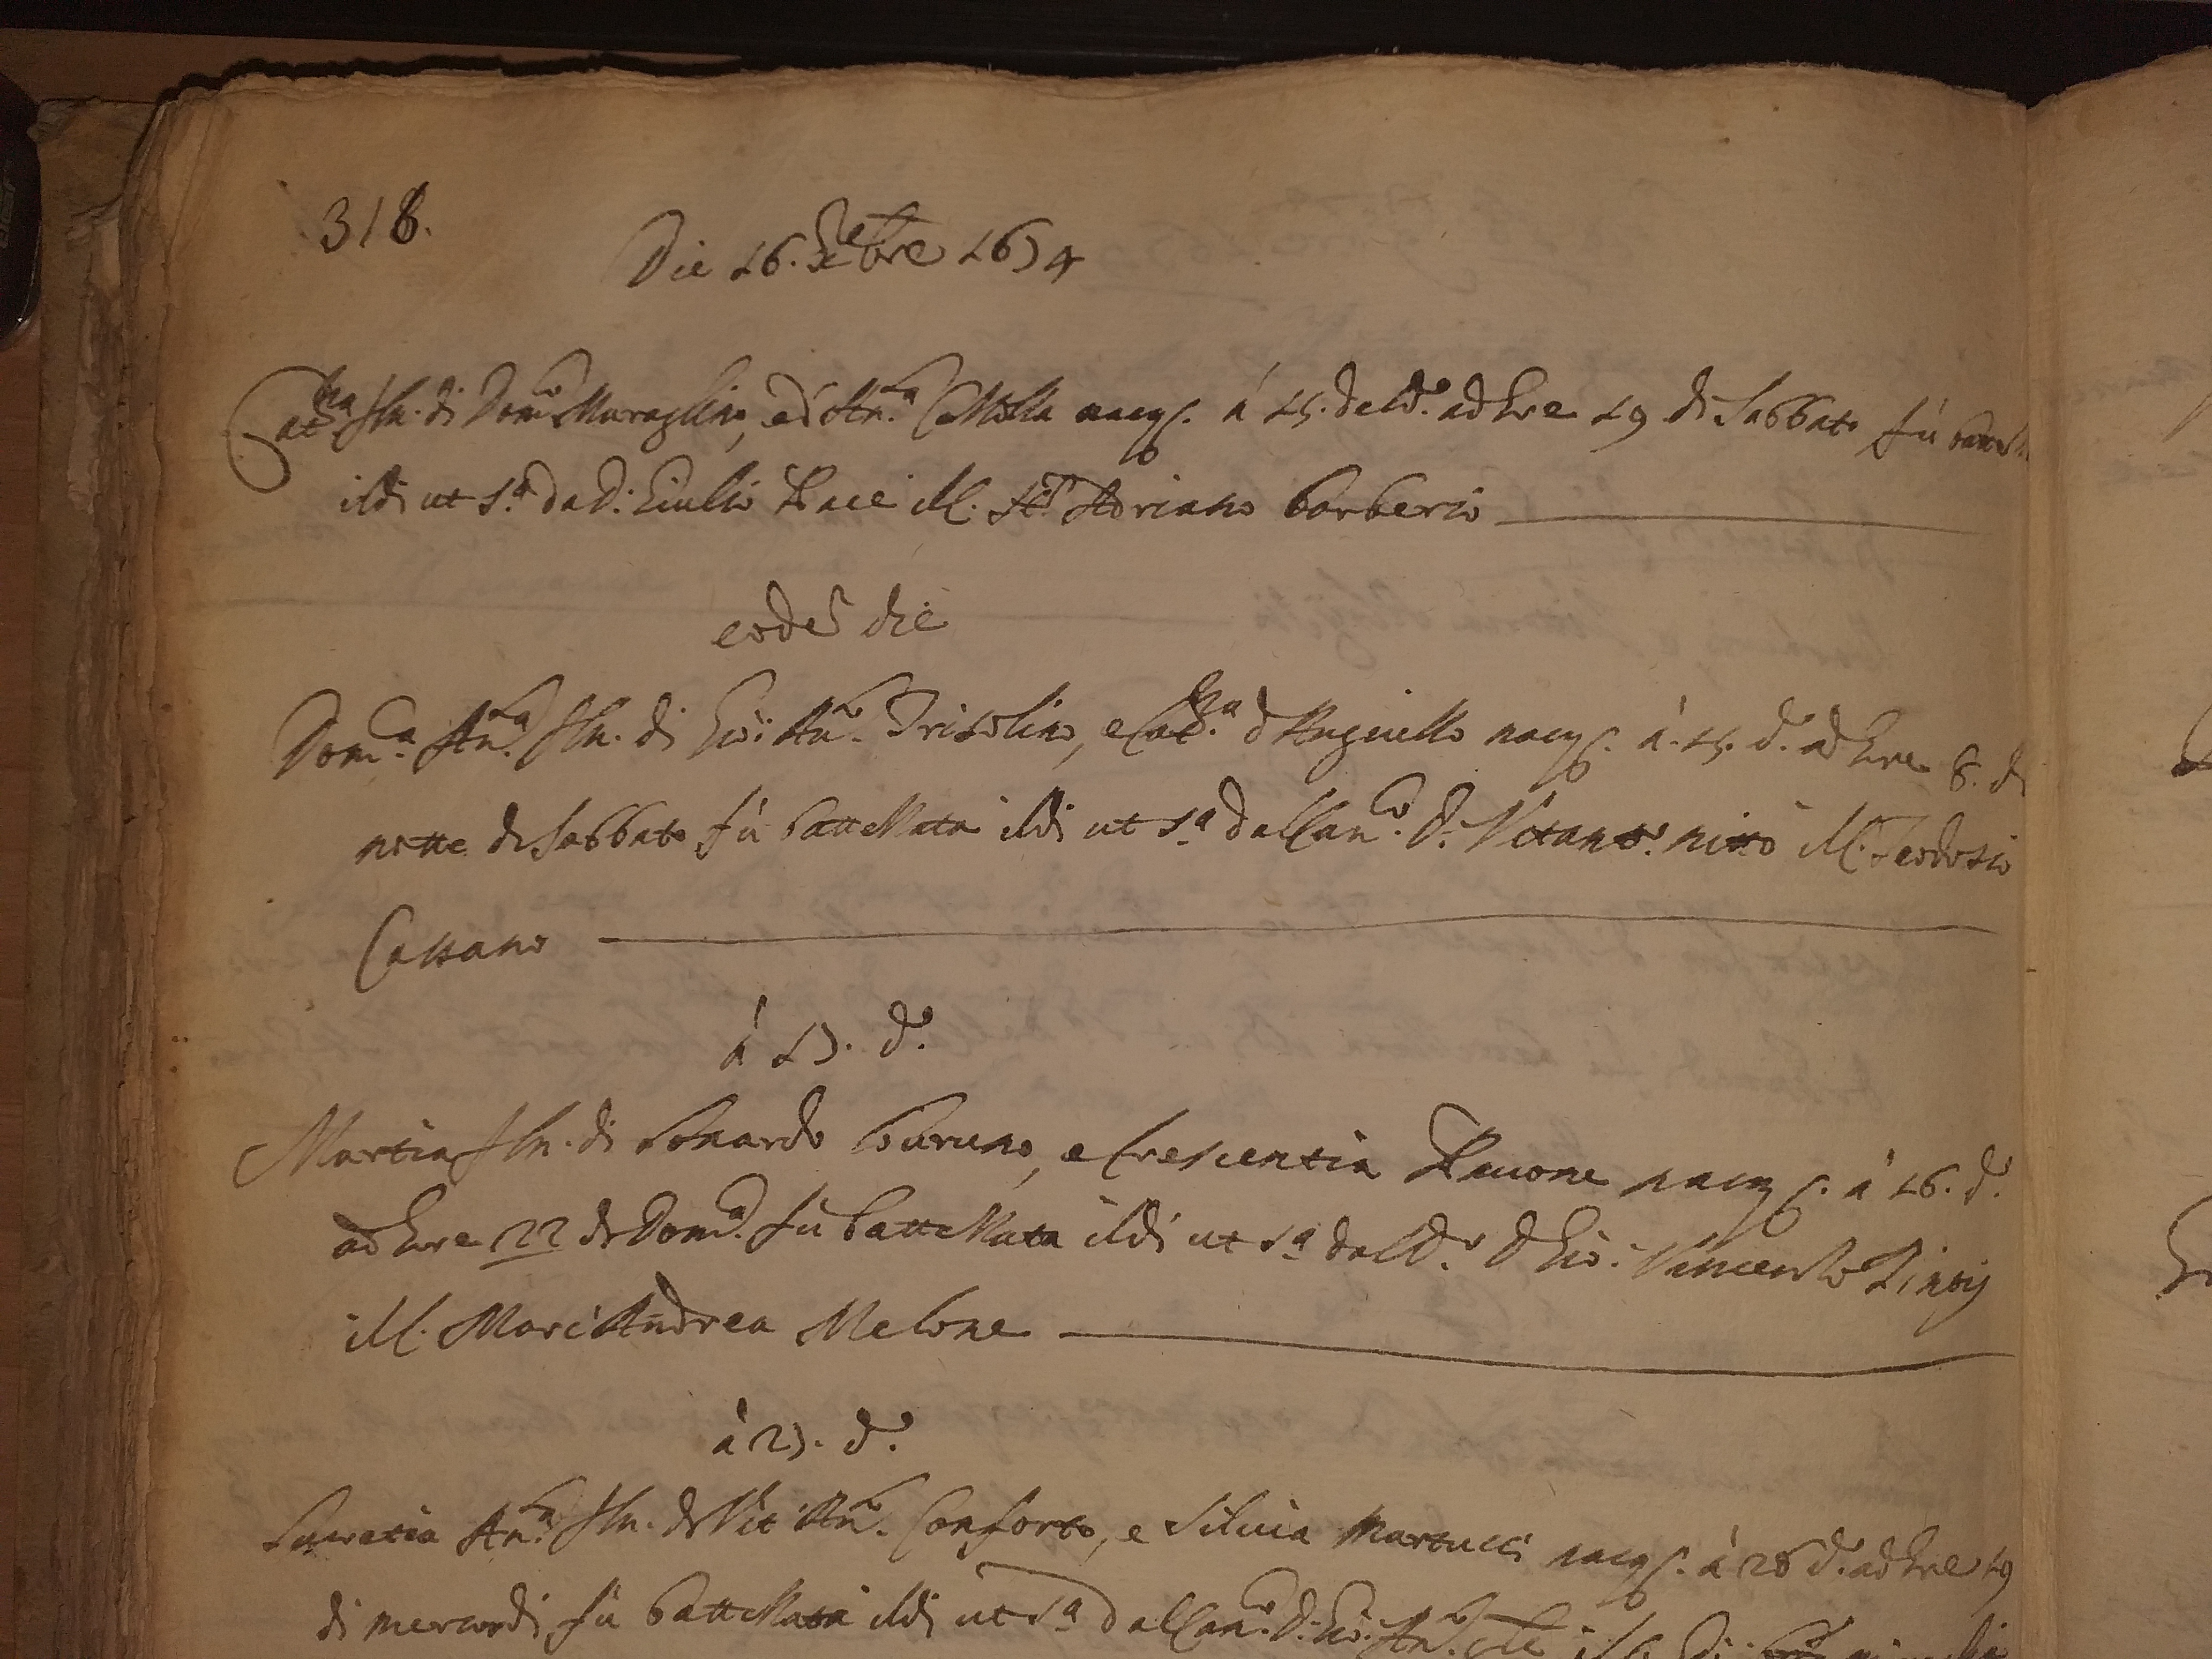 318.
Die 16. 7bre 1674
Cat.na fla. di Dom.co Muraglino, ed An.a Cola nacq. à 15. del d.o ad hore 19 di Sabbato fù
il dì ut s.a da D: Giulio Pace il C. Adriano Barberio
eode die
Dom.ca An.a fla. di Gio: An.o Trisolino, e Cat.a d'Anginello nacq. à 15. d.o ad hore 8. di
notte di Sabbato fù battezzata il dì ut s.a dal Can.co D. Vitant.o nitto il C. Teodosio
Cassano
à 17. d.o
Martia fla. di Lonardo Loturno, e Crescentia Pauone nacq. à 16. d.o
ad hore 22 di Dom.ca fù battezzata il dì ut s.a dal D.r D Gio: Vincenzo
il C. Marc'Andrea Melone
à 27. d.o
Lucretia An.a fla. di Vit'An.o Conforto, e Siluia Martucci nacq. à 26 d.o ad hore 19
di mercordì fù battezzata il dì ut s.a dal Can.co D. Gio: An.o